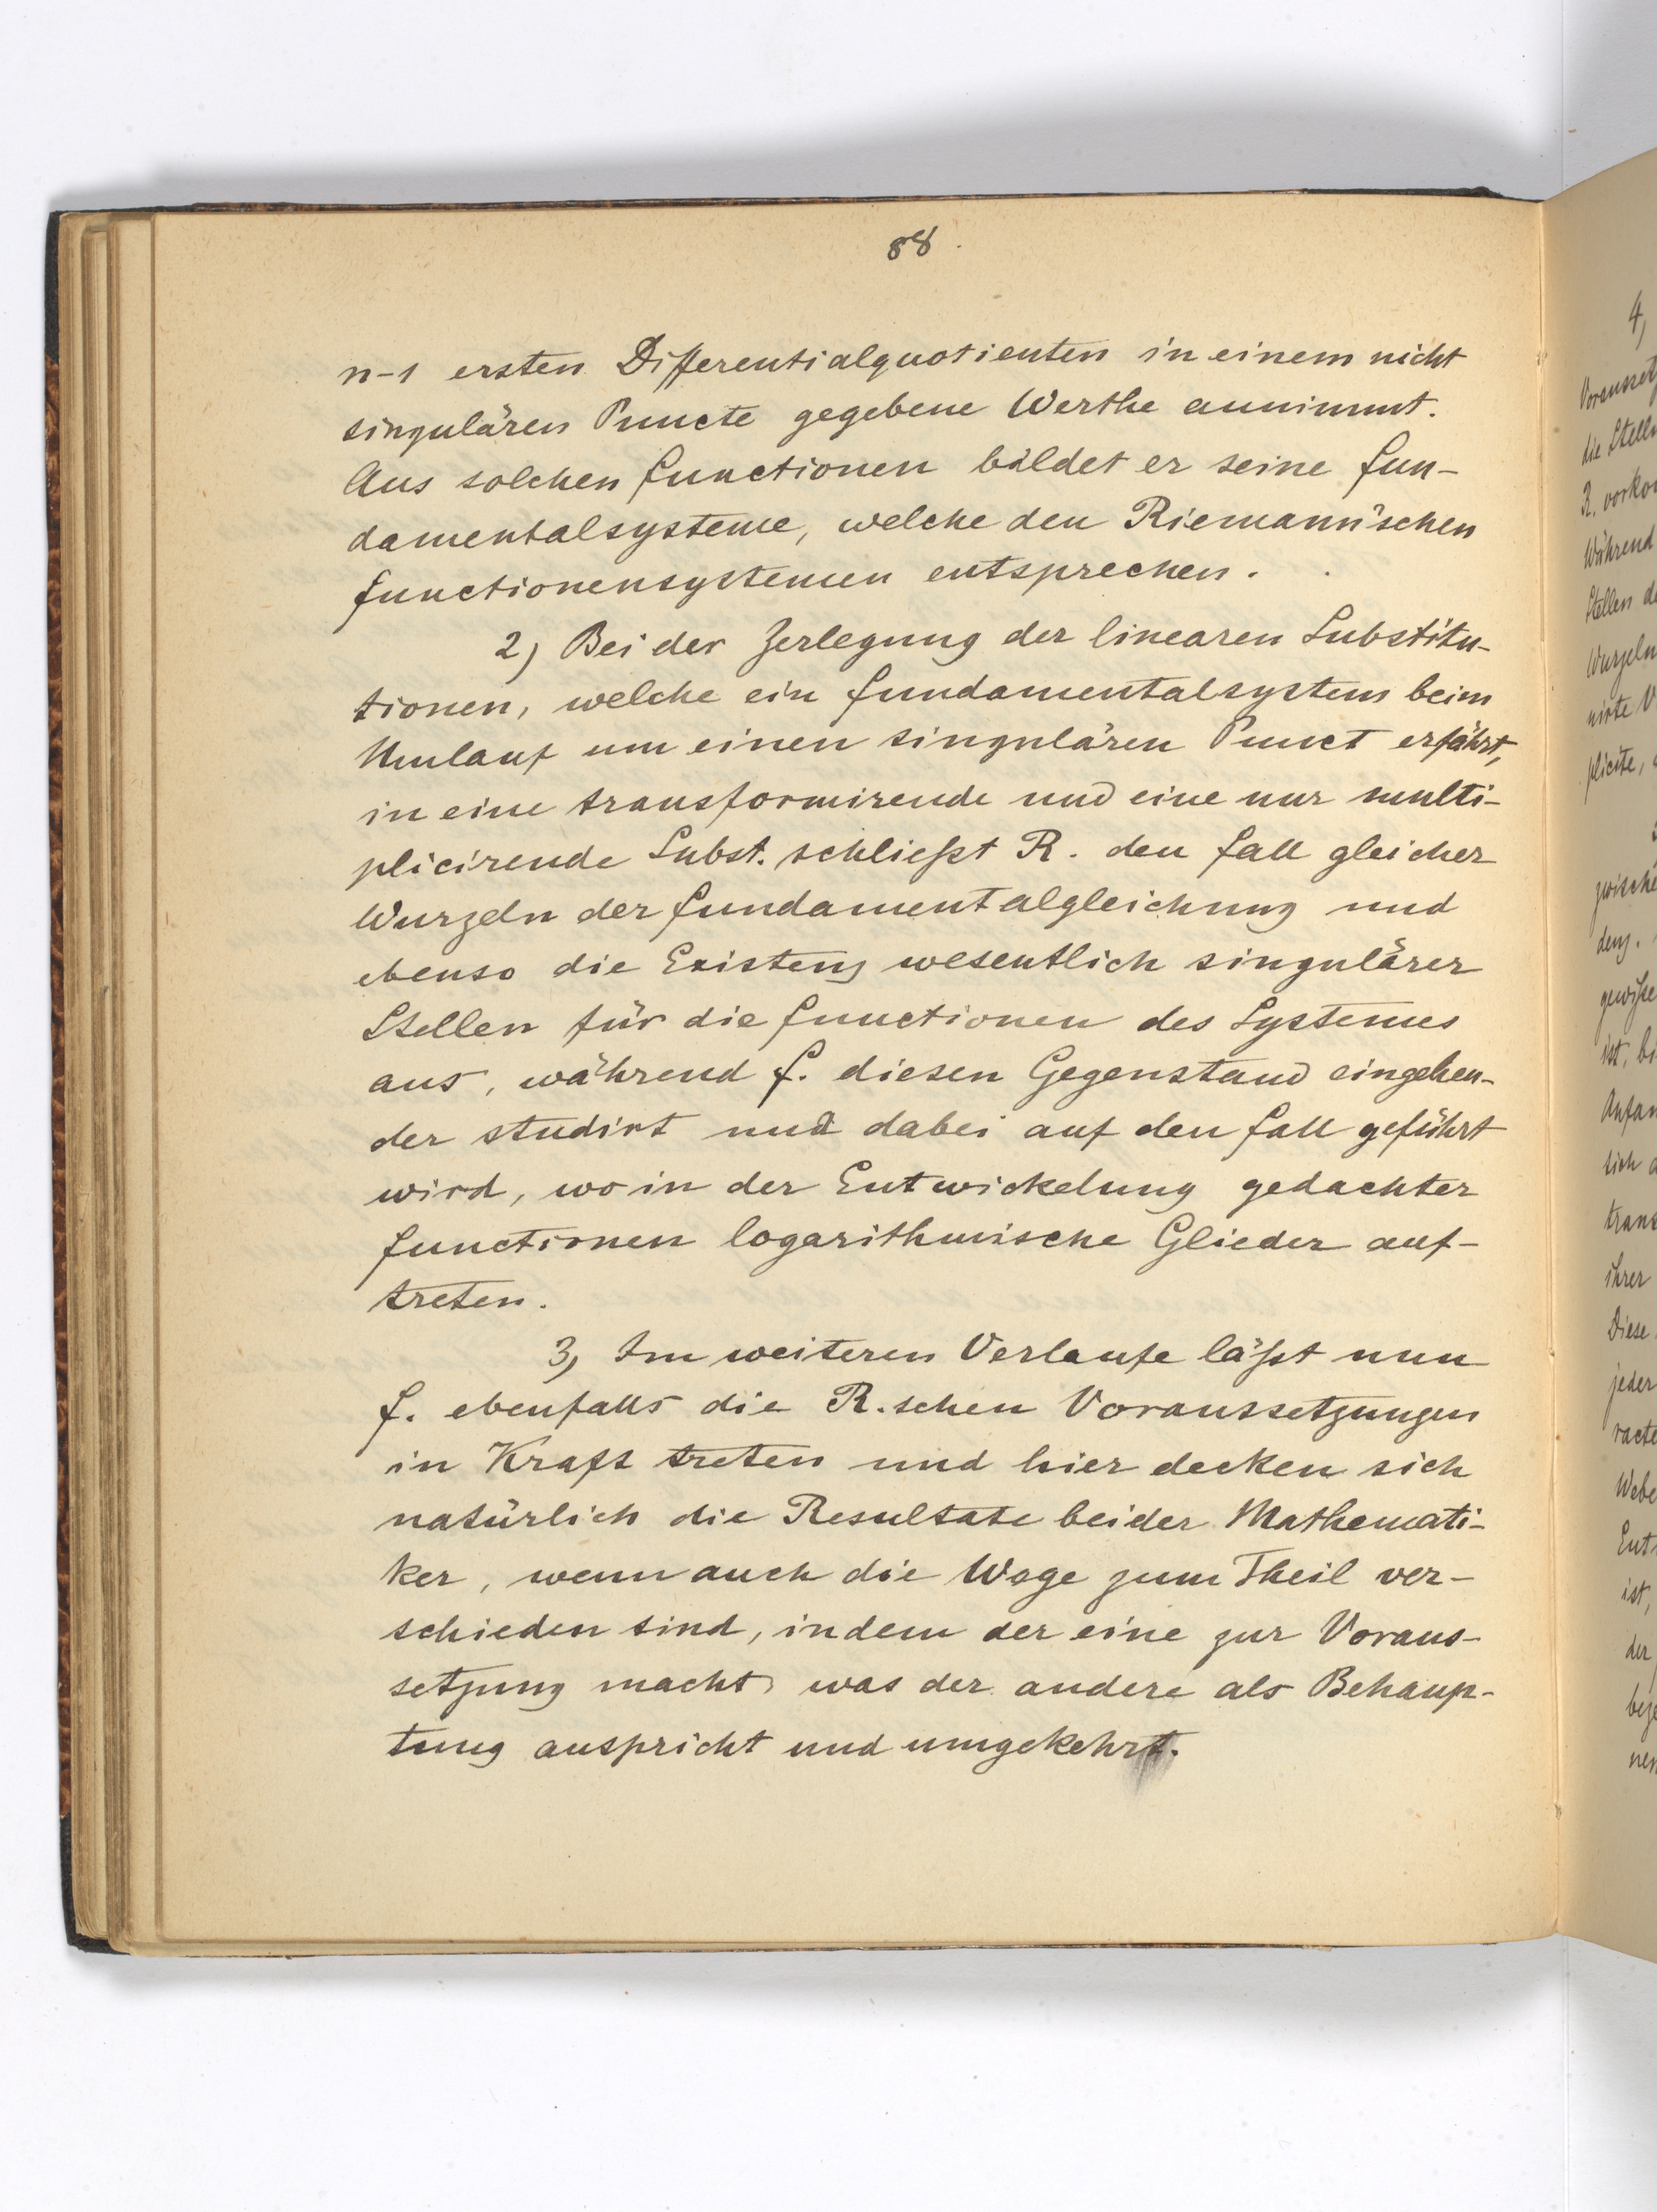 88.
n-1 ersten Differentialquotienten in einem nicht
singulären Puncte gegebene Werthe annimmt.
Aus solchen Functionen bildet er seine Fun-
damentalsysteme, welche den Riemann'schen
Functionensystemen entsprechen.
2) Bei der Zerlegung der linearen Substitu-
tionen, welche ein Fundamentalsystem beim
Umlauf um einen singulären Punct erfährt,
in eine transformirende und eine nur multi-
plicirende Subst. schließt R. den Fall gleicher
Wurzeln der Fundamentalgleichung und
ebenso die Existenz wesentlich singulärer
Stellen für die Functionen des Systemes
aus, während F. diesen Gegenstand eingehen-
der studirt und dabei auf den Fall geführt
wird, wo in der Entwickelung gedachter
Functionen logarithmische Glieder auf-
treten.
3, Im weiteren Verlaufe läßt nun
F. ebenfalls die R.schen Voraussetzungen
in Kraft treten und hier decken sich
natürlich die Resultate beider Mathemati-
ker, wenn auch die Wege zum Theil ver-
schieden sind, indem der eine zur Voraus-
setzung macht, was der andere als Behaup-
tung auspricht und umgekehrt.
4,
die
R.
Während
Stellen
Wurzeln
plicite,
ist,
sich
ihrer
Diese
jeder
ist,
der